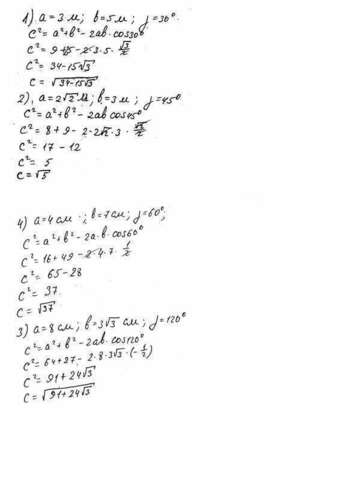 1) a = 3 м; b = 5 м; γ = 30°
c² = a² + b² - 2ab·cos30°
c² = 9 + 25 - 2·3·5·√3/2
c² = 34 - 15√3
c = √(34-15√3)
2) a = 2√2 м; b = 3 м; γ = 45°
c² = a² + b² - 2ab·cos45°
c² = 8 + 9 - 2·2√2·3·√2/2
c² = 17 - 12
c² = 5
c = √5
4) a = 4 см; b = 7 см; γ = 60°;
c² = a² + b² - 2a·b·cos60°
c² = 16 + 49 - 2·4·7·1/2
c² = 65 - 28
c² = 37.
c = √37
3) a = 8 см; b = 3√3 см; γ = 120°
c² = a² + b² - 2ab·cos120°
c² = 64 + 27 - 2·8·3√3·(-1/2)
c² = 91 + 24√3
c = √(91+24√3)